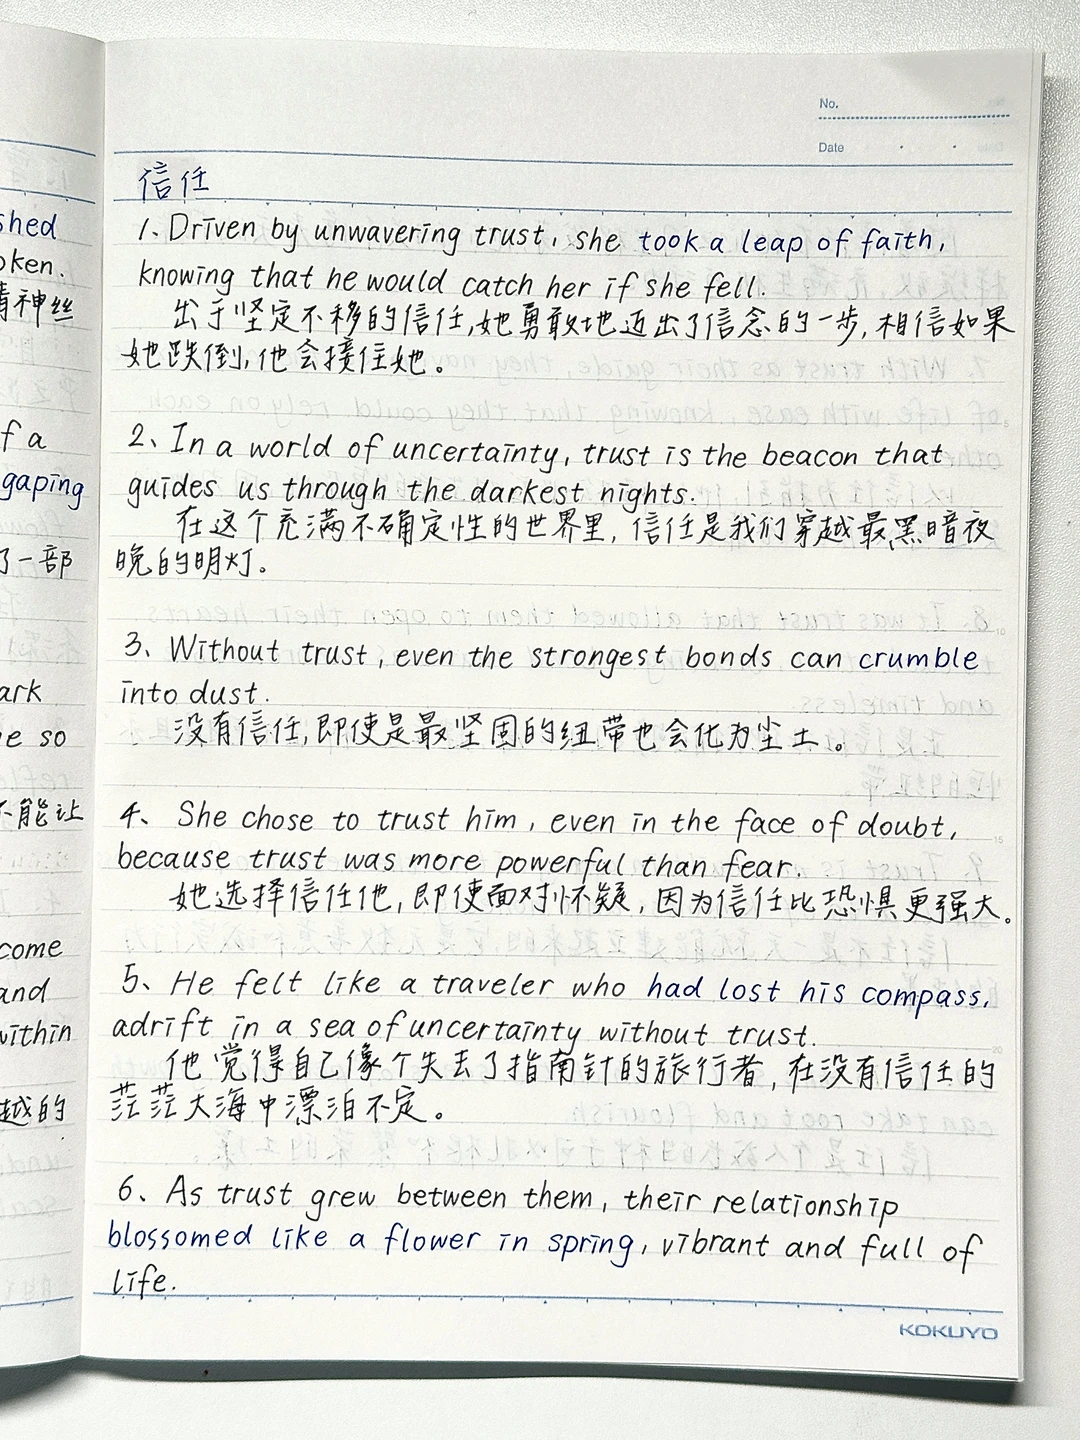 shed
oken.
精神丝
f a
gaping
了一部
ark
e so
不能让
come
and
within
越的
No.
Date
信任
1、Driven by unwavering trust, she took a leap of faith,
knowing that he would catch her if she fell.
出于坚定不移的信任,她勇敢地迈出了信念的一步,相信如果
她跌倒,他会接住她。
2、In a world of uncertainty, trust is the beacon that
guides us through the darkest nights.
在这个充满不确定性的世界里,信任是我们穿越最黑暗夜
晚的明灯。
3、Without trust, even the strongest bonds can crumble
into dust.
没有信任,即使是最坚固的纽带也会化为尘土。
4、She chose to trust him, even in the face of doubt,
because trust was more powerful than fear.
她选择信任他,即使面对怀疑,因为信任比恐惧更强大。
5、He felt like a traveler who had lost his compass,
adrift in a sea of uncertainty without trust.
他觉得自己像个失去了指南针的旅行者,在没有信任的
茫茫大海中漂泊不定。
6、As trust grew between them, their relationship
blossomed like a flower in spring, vibrant and full of
life.
KOKUYO